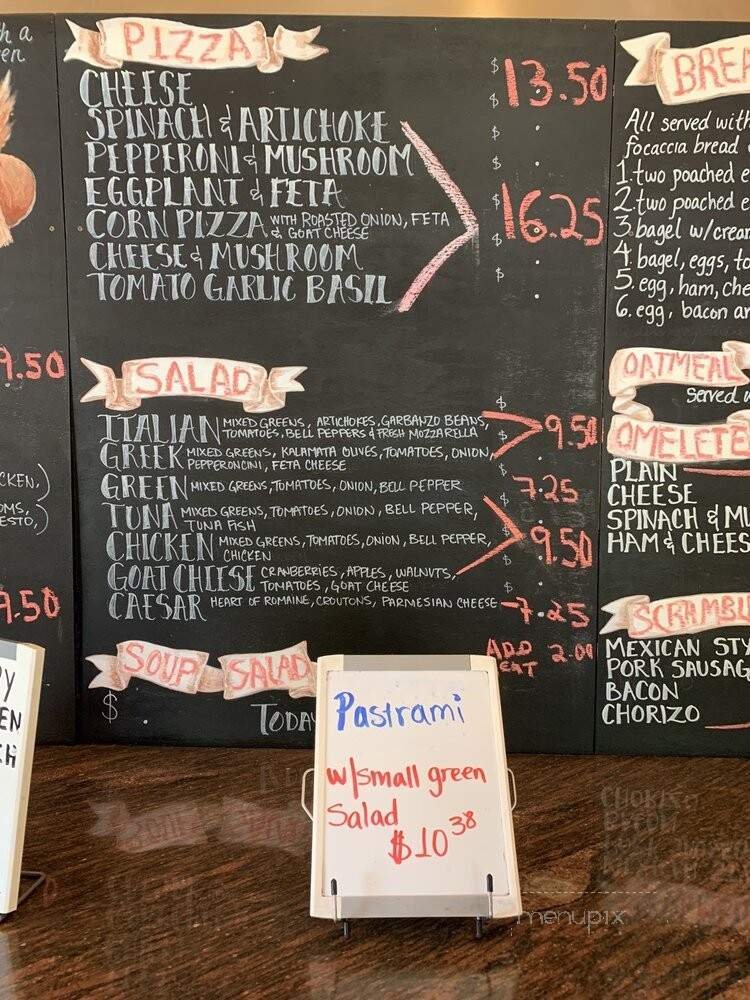 PIZZA
CHEESE
$ 13.50
SPINACH & ARTICHOKE
PEPPERONI & MUSHROOM
EGGPLANT & FETA
CORN PIZZA WITH ROASTED ONION, FETA
& GOAT CHEESE
$ 16.25
CHEESE & MUSHROOM
TOMATO GARLIC BASIL
SALAD
ITALIAN MIXED GREENS, ARTICHOKES, GARBANZO BEANS,
TOMATOES, BELL PEPPERS & FRESH MOZZARELLA
9.50
GREEK MIXED GREENS, KALAMATA OLIVES, TOMATOES, ONION,
PEPPERONCINI, FETA CHEESE
GREEN MIXED GREENS, TOMATOES, ONION, BELL PEPPER
7.25
TUNA MIXED GREENS, TOMATOES, ONION, BELL PEPPER,
TUNA FISH
CHICKEN MIXED GREENS, TOMATOES, ONION, BELL PEPPER,
CHICKEN
9.50
GOAT CHEESE CRANBERRIES, APPLES, WALNUTS,
TOMATOES, GOAT CHEESE
CAESAR HEART OF ROMAINE, CROUTONS, PARMESIAN CHEESE
7.25
ADD 2.00
SOUP SALAD
$
TODA
Pastrami
w/small green
Salad
$10 38
9.50
CKEN,)
OMS,
ESTO,)
9.50
EN
CH
BREA
All served with
focaccia bread
1. two poached e
2. two poached e
3. bagel w/crea
4. bagel, eggs, to
5. egg, ham, che
6. egg, bacon a
OATMEAL
served w
OMELETE
PLAIN
CHEESE
SPINACH & MU
HAM & CHEES
SCRAMBL
MEXICAN STY
PORK SAUSAG
BACON
CHORIZO
menupix